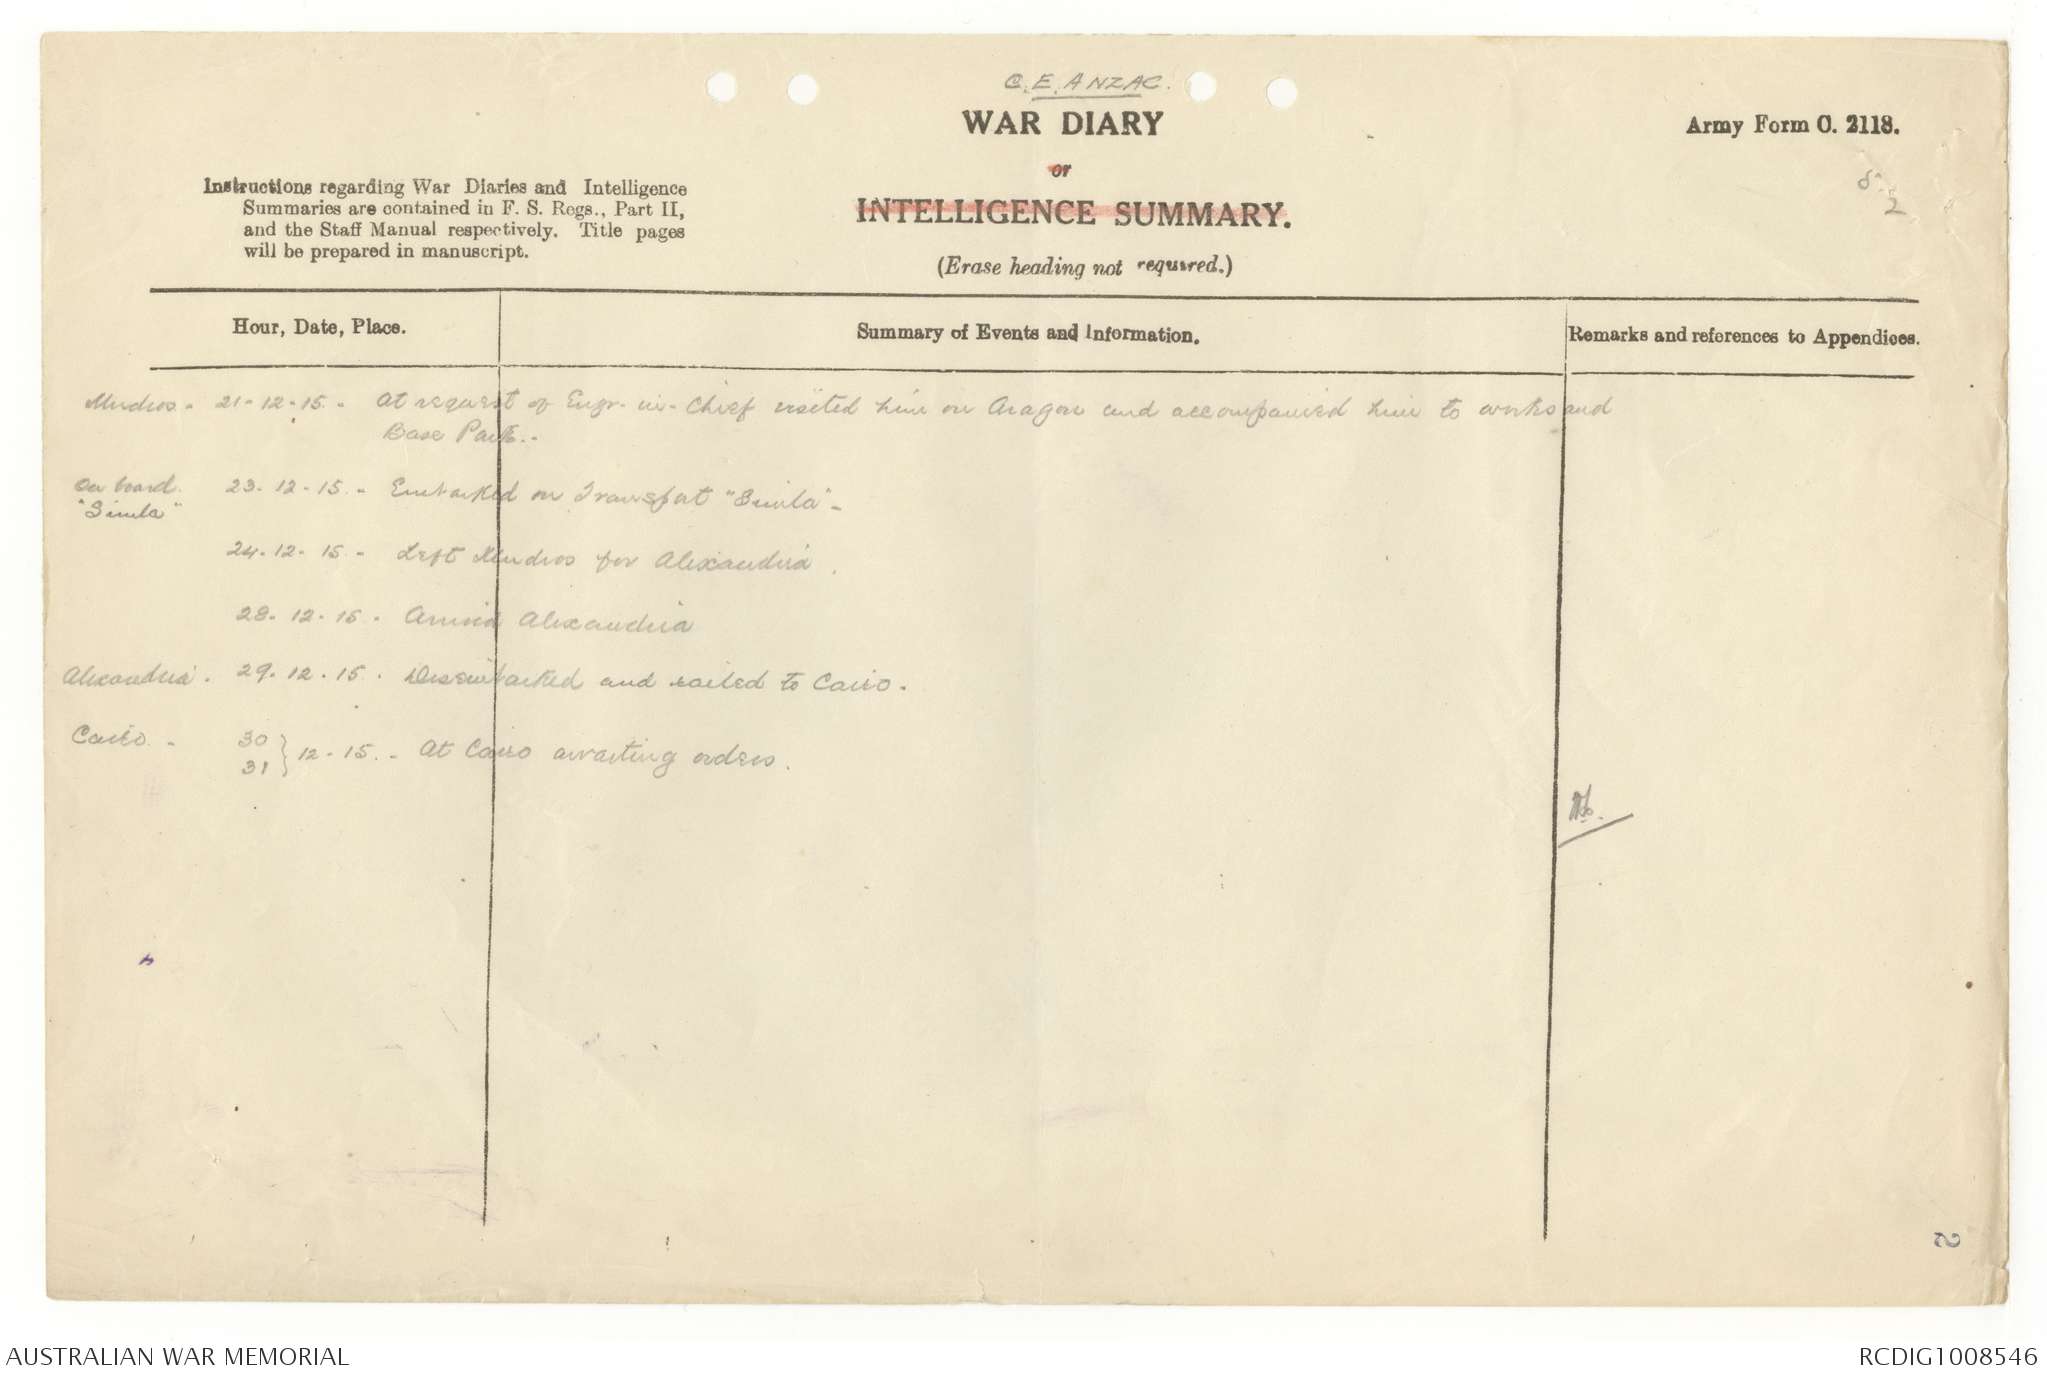 C.E. ANZAC.
WAR DIARY
or
INTELLIGENCE SUMMARY.
(Erase heading not required.)
Army Form C. 2118.
2
Instructions regarding War Diaries and Intelligence
Summaries are contained in F. S. Regs., Part II,
and the Staff Manual respectively. Title pages
will be prepared in manuscript.
Hour, Date, Place.
Summary of Events and Information.
Remarks and references to Appendices.
Mudros - 21-12-15. - At request of Engr-in-Chief visited him on Aragon and accompanied him to works and
Base Park.-
On board 23-12-15. - Embarked on Transport "Simla" -
"Simla"
24-12-15. - Left Mudros for Alexandria.
28-12-15. - Arrived Alexandria
Alexandria. 29.12.15. Disembarked and railed to Cairo.
Cairo - 30
31 } 12-15. - At Cairo awaiting orders.
2
AUSTRALIAN WAR MEMORIAL
RCDIG1008546